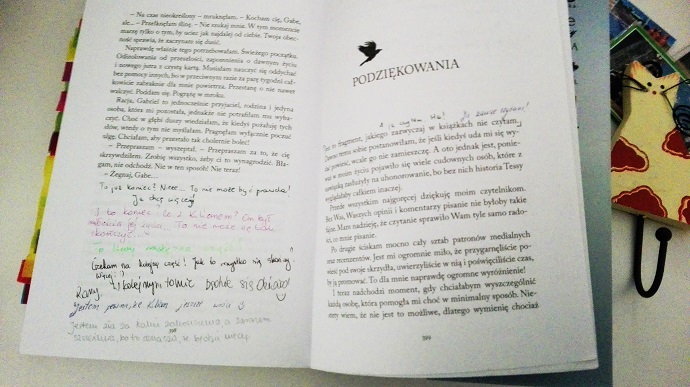 – Na czas nieokreślony – mruknęłam. – Kocham cię, Gabe,
ale... – Przełknęłam ślinę. – Nie szukaj mnie. W tym momencie
marzę tylko o tym, by uciec jak najdalej od ciebie. Twoja obec-
ność sprawia, że zaczynam się dusić.
Naprawdę właśnie tego potrzebowałam. Świeżego początku.
Odizolowania od przeszłości, zapomnienia o dawnym życiu
i nowego jutra z czystą kartą. Musiałam nauczyć się oddychać
bez pomocy innych, bo w przeciwnym razie za parę tygodni cał-
kowicie zabraknie dla mnie powietrza. Przestanę o nie nawet
walczyć. Poddam się. Pogrążę w mroku.
Racja, Gabriel to jednocześnie przyjaciel, rodzina i jedyna
osoba, która mi pozostała, jednakże nie potrafiłam mu wyba-
czyć. Choć w głębi duszy wiedziałam, że kiedyś pożałuję tych
słów, wtedy o tym nie myślałam. Pragnęłam wyłącznie poczuć
ulgę. Chciałam, aby przestało tak cholernie boleć!
– Przepraszam – wyszeptał. – Przepraszam za to, że cię
skrzywdziłem. Zrobię wszystko, żeby ci to wynagrodzić. Bła-
gam, nie odchodź. Nie w ten sposób! Nie teraz!
– Żegnaj, Gabe...
To już koniec? Nieee... To nie może być prawda!
Ja chcę więcej!
I to koniec? Co z Kilianem? On był
To nie może się tak
skończyć...
Czekam na kolejną część! Jak to wszystko się skończy
kolejnym tomie będzie się działo!
Jestem
PODZIĘKOWANIA
A ja czytam
Ja zawsze czytam!
Jest to fragment, jakiego zazwyczaj w książkach nie czytam.
Dawno temu sobie postanowiłam, że jeśli kiedyś uda mi się wy-
dać powieść, wcale go nie zamieszczę. A oto jednak jest, ponie-
waż w moim życiu pojawiło się wiele cudownych osób, które z
pewnością zasłużyły na uhonorowanie, bo bez nich historia Tessy
wyglądałaby całkiem inaczej.
Przede wszystkim najgoręcej dziękuję moim czytelnikom.
Bez Was, Waszych opinii i komentarzy pisanie nie byłoby takie
fajne. Mam nadzieję, że czytanie sprawiło Wam tyle samo rado-
ści, co mnie pisanie.
Po drugie ściskam mocno cały sztab patronów medialnych
oraz recenzentów. Jest mi ogromnie miło, że przygarnęliście po-
wieść pod swoje skrzydła, uwierzyliście w nią i poświęciliście czas,
by ją promować. To dla mnie naprawdę ogromne wyróżnienie!
I teraz nadchodzi moment, gdy chciałabym wyszczególnić
każdą osobę, która pomogła mi choć w minimalny sposób. Nie-
stety wiem, że nie jest to możliwe, dlatego wymienię chociaż